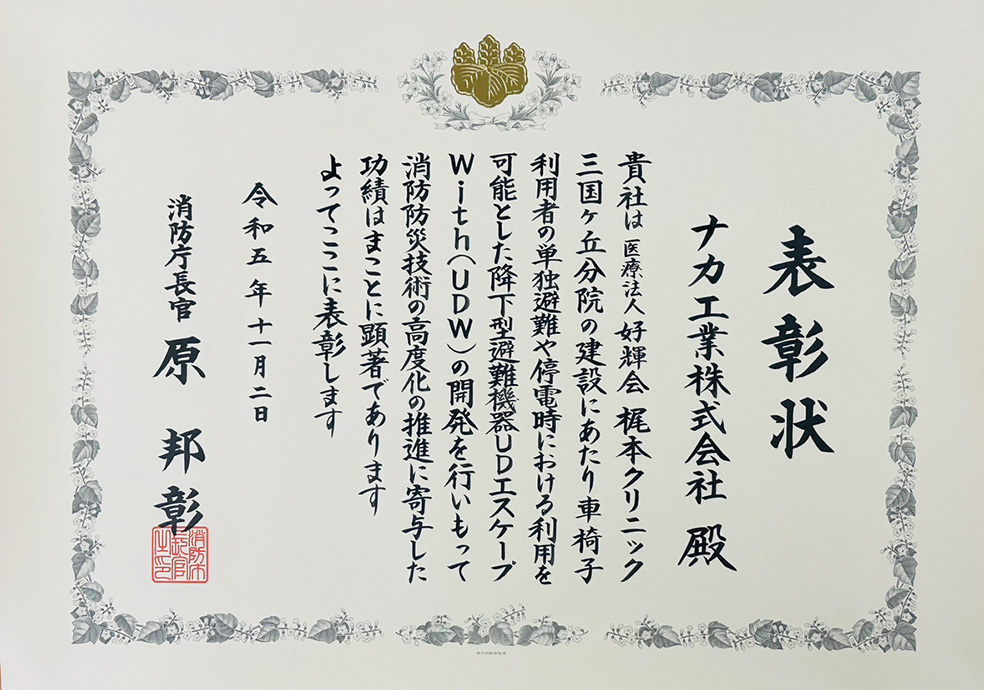 表彰状
ナカ工業株式会社 殿
貴社は医療法人 好輝会 梶本クリニック
三国ヶ丘分院の建設にあたり車椅子
利用者の単独避難や停電時における利用を
可能とした降下型避難機器UDエスケープ
With(UDW)の開発を行いもって
消防防災技術の高度化の推進に寄与した
功績はまことに顕著であります
よってここに表彰します
令和五年十一月二日
消防庁長官 原 邦彰